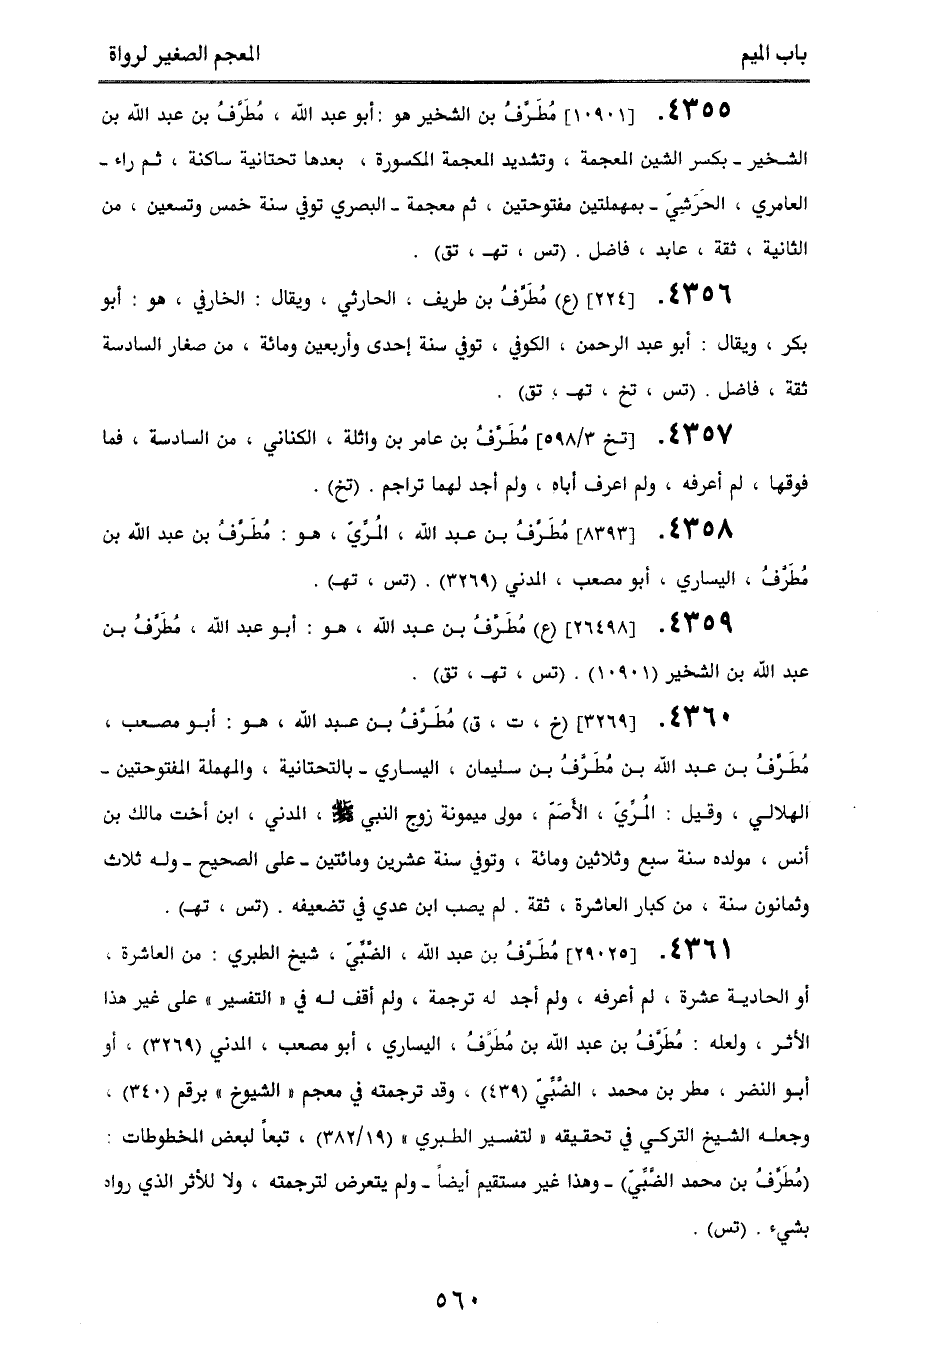 باب الميم
المعجم الصغير لرواة
٤٣٥٥. [١٠٩٠١] مُطَرَّفُ بن الشخير هو : أبو عبد الله ، مُطَرَّفُ بن عبد الله بن
الشخير ـ بكسر الشين المعجمة ، وتشديد المعجمة المكسورة ، بعدها تحتانية ساكنة ، ثم راء ـ
العامري ، الحَرَشِيّ ـ بمهملتين مفتوحتين ، ثم معجمة ـ البصري توفي سنة خمس وتسعين ، من
الثانية ، ثقة ، عابد ، فاضل . (تس ، تهـ ، تق) .
٤٣٥٦. [٢٢٤] (ع) مُطَرَّفُ بن طريف ، الحارثي ، ويقال : الخارفي ، هو : أبو
بكر ، ويقال : أبو عبد الرحمن ، الكوفي ، توفي سنة إحدى وأربعين ومائة ، من صغار السادسة
ثقة ، فاضل . (تس ، تخ ، تهـ ، تق) .
٤٣٥٧. [تخ ٥٩٨/٣] مُطَرَّفُ بن عامر بن واثلة ، الكناني ، من السادسة ، فما
فوقها ، لم أعرفه ، ولم اعرف أباه ، ولم أجد لهما تراجم . (تخ) .
٤٣٥٨. [٨٣٩٣] مُطَرَّفُ بن عبد الله ، المُزِّيّ ، هو : مُطَرَّفُ بن عبد الله بن
مُطَرَّفُ ، اليساري ، أبو مصعب ، المدني (٣٢٦٩) . (تس ، تهـ) .
٤٣٥٩. [٢٦٤٩٨] (ع) مُطَرَّفُ بن عبد الله ، هو : أبو عبد الله ، مُطَرَّفُ بن
عبد الله بن الشخير (١٠٩٠١) . (تس ، تهـ ، تق) .
٤٣٦٠. [٣٢٦٩] (خ ، ت ، ق) مُطَرَّفُ بن عبد الله ، هو : أبو مصعب ،
مُطَرَّفُ بن عبد الله بن مُطَرَّفُ بن سليمان ، اليساري ـ بالتحتانية ، والمهملة المفتوحتين ـ
الهلالي ، وقيل : المُزِّيّ ، الأَصَمّ ، مولى ميمونة زوج النبي ﷺ ، المدني ، ابن أخت مالك بن
أنس ، مولده سنة سبع وثلاثين ومائة ، وتوفي سنة عشرين ومائتين ـ على الصحيح ـ وله ثلاث
وثمانون سنة ، من كبار العاشرة ، ثقة . لم يصب ابن عدي في تضعيفه . (تس ، تهـ) .
٤٣٦١. [٢٩٠٢٥] مُطَرَّفُ بن عبد الله ، الضَّبِّيّ ، شيخ الطبري : من العاشرة ،
أو الحادية عشرة ، لم أعرفه ، ولم أجد له ترجمة ، ولم أقف له في « التفسير » على غير هذا
الأثر ، ولعله : مُطَرَّفُ بن عبد الله بن مُطَرَّفُ ، اليساري ، أبو مصعب ، المدني (٣٢٦٩) ، أو
أبو النضر ، مطر بن محمد ، الضَّبِّيّ (٤٣٩) ، وقد ترجمته في معجم « الشيوخ » برقم (٣٤٠) ،
وجعله الشيخ التركي في تحقيقه « لتفسير الطبري » (٣٨٢/١٩) ، تبعاً لبعض المخطوطات :
(مُطَرَّفُ بن محمد الضَّبِّيّ) ـ وهذا غير مستقيم أيضاً ـ ولم يتعرض لترجمته ، ولا للأثر الذي رواه
بشيء . (تس) .
٥٦٠